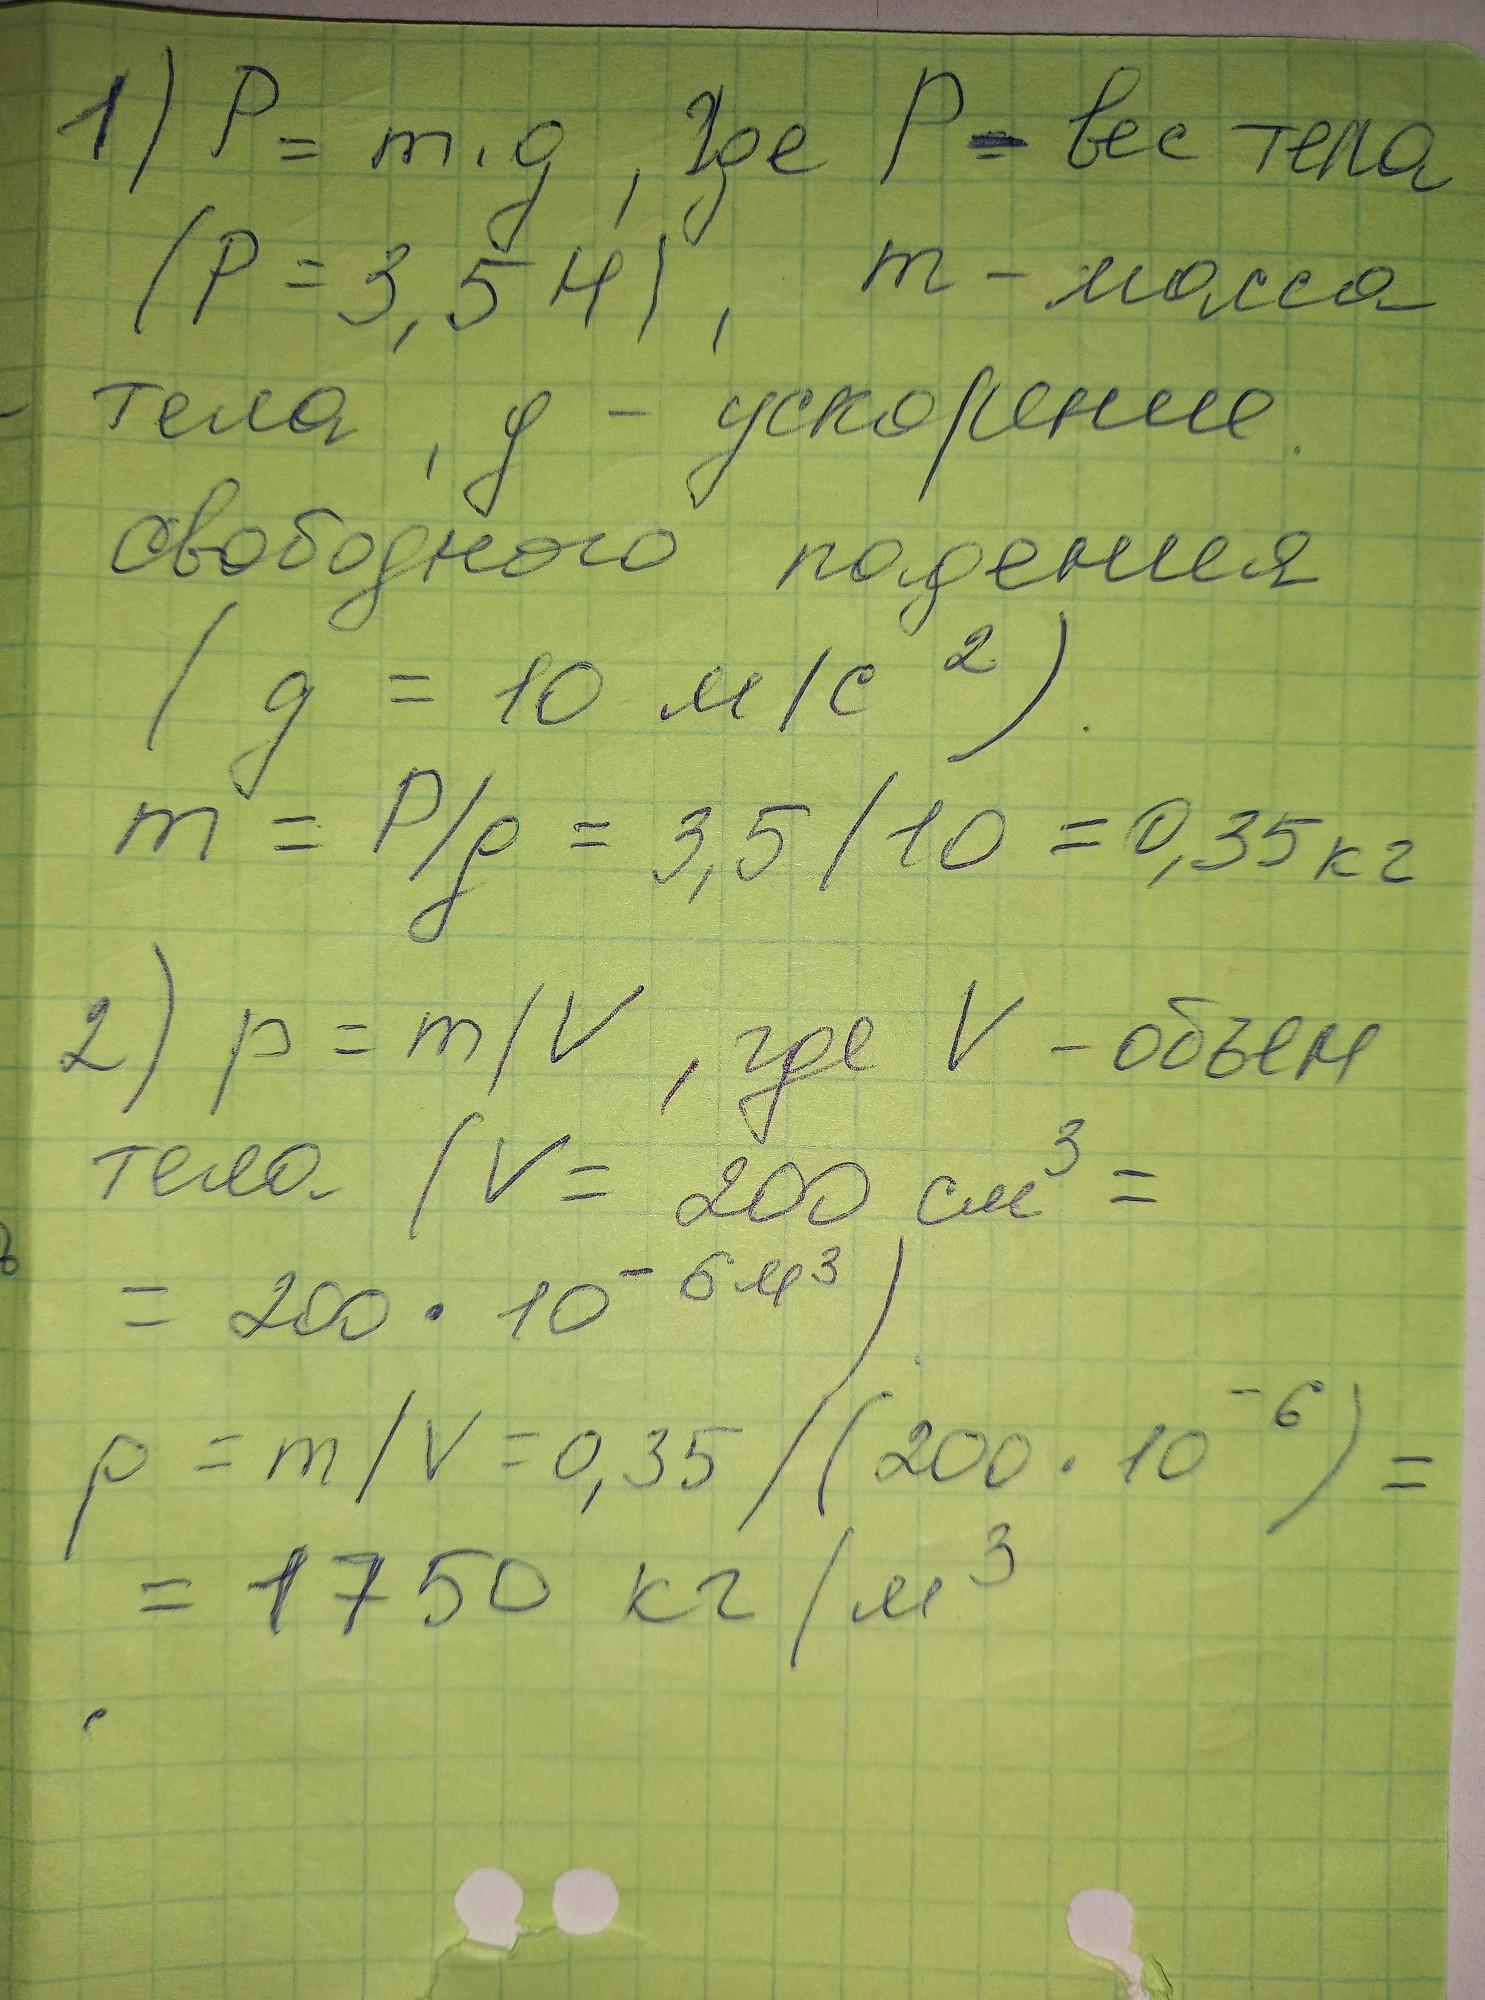 1) P = m·g, где P - вес тела
(P = 3,5 Н), m - масса
тела, g - ускорение
свободного падения
(g = 10 м/с²).
m = P/g = 3,5/10 = 0,35 кг
2) p = m/V, где V - объем
тела (V = 200 см³ =
= 200 · 10⁻⁶ м³).
p = m/V = 0,35/(200 · 10⁻⁶) =
= 1750 кг/м³